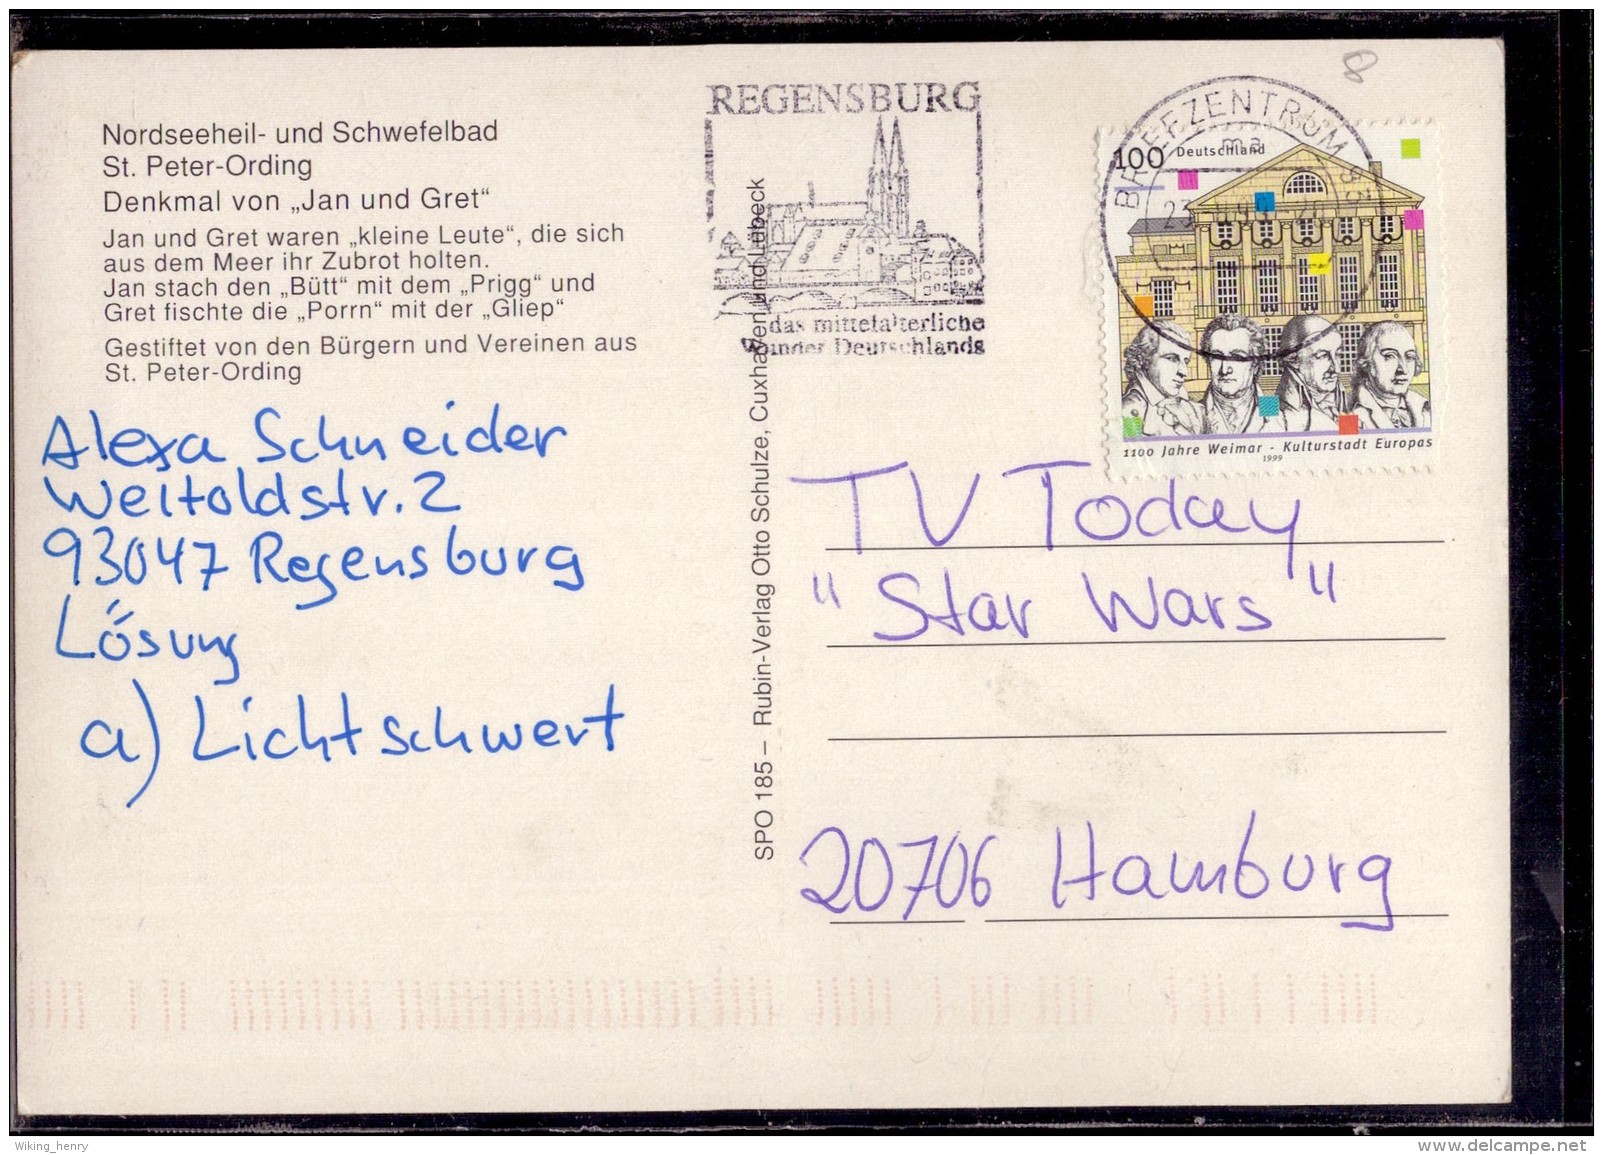 Nordseeheil- und Schwefelbad
St. Peter-Ording
Denkmal von „Jan und Gret“
Jan und Gret waren „kleine Leute“, die sich
aus dem Meer ihr Zubrot holten.
Jan stach den „Bütt“ mit dem „Prigg“ und
Gret fischte die „Porrn“ mit der „Gliep“
Gestiftet von den Bürgern und Vereinen aus
St. Peter-Ording
Alexa Schneider
Weitoldstr. 2
93047 Regensburg
Lösung
a) Lichtschwert
SPO 185 – Rubin-Verlag Otto Schulze, Cuxhaven und Lübeck
REGENSBURG
das mittelalterliche
Wunder Deutschlands
8
BRIEFZENTRUM
ma
23
100 Deutschland
1100 Jahre Weimar - Kulturstadt Europas
1999
TV Today
"Star Wars"
20706 Hamburg
Wiking_henry
www.delcampe.net